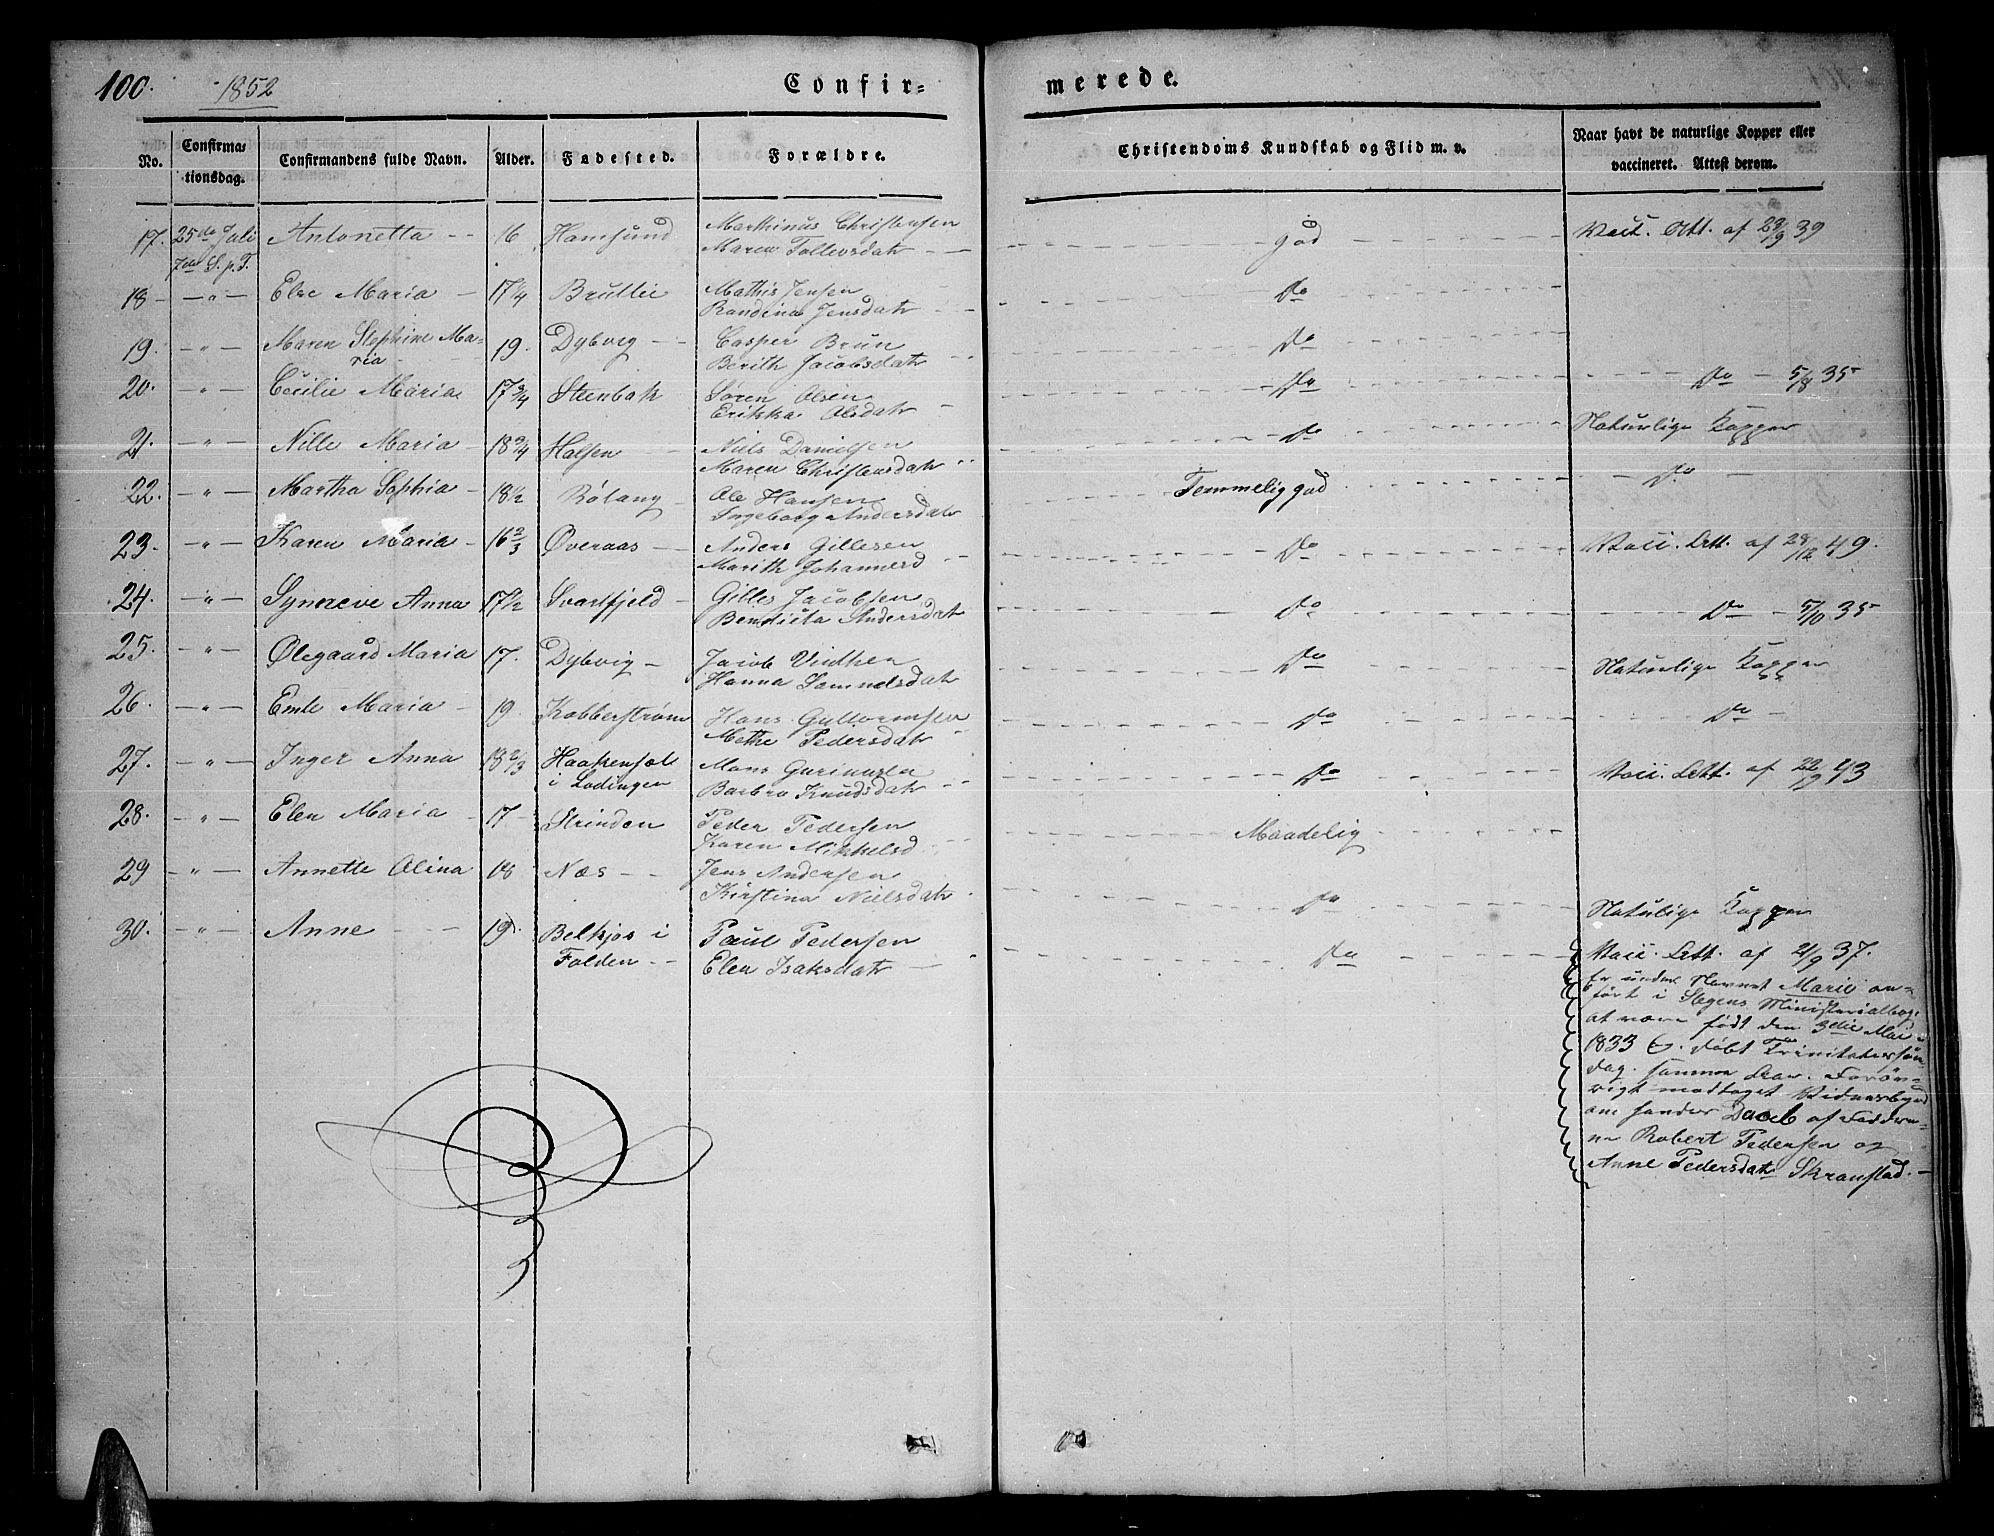 100. 1852 Confir= merede.
No. Confirmationsdag. Confirmandens fulde Navn. Alder. Fødested. Forældre. Christendoms Kundskab og Flid m. v. Naar havt de naturlige Kopper eller vaccineret. Attest derom.
17. 25de Juli Antonetta 16 Hamsund Marthinus Christensen god Vacc. Att. af 23/9 39
7de S. p. T. Maren Tollevsdatr
18 - " - Else Maria 17 1/4 Mathis Jensen Do
Randina Jensdatr
19. - " - Maren Stephine Ma- 19. Dybvig Casper Brun Do
ria Berith Jacobsdatr
20. - " - Cecilie Maria 17 3/4 Steenbak Søren Olsen Do Do 5/8 35
Erikka Olsdatr
21. - " - Nille Maria 18 3/4 Halsen Niels Danielsen Do Naturlige Kopper
Maren Christensdatr
22. - " - Martha Sophia 18 1/2 Rølang Ole Hansen Temmelig god Do
Ingeborg Andersdatr
23. - " - Karen Maria 16 2/3 Øveraas Anders Gillesen Do Vacc. Att. af 28/12 49.
Marith Johannesd
24. - " - Synneve Anna 17 1/2 Svartfjeld Gilles Jacobsen Do Do 5/10 35
Bendicta Andersdatr
25. - " - Ølegaard Maria 17. Dybvig Jacob Do Naturlige Kopper
Hanna Samuelsdatr
26. - " - Emle Maria 19. Kobberstrøm Hans Guttormsen Do Do
Methe Pedersdatr
27. - " - Inger Anna 18 2/3 Mons Do Vacc. Att. af 22/9 43
i Lodingen Barbro Knudsdatr
28. - " - Elen Maria 17 Strinden Peder Pedersen Maadelig
Karen Mikkelsd
29 - " - Annette Olina 18 Næs Jens Andersen Do Naturlige Kopper
Kirstina Nielsdatr
30. - " - Anne 19. i Paul Pedersen Do Vacc. Att. af 21/9 37.
Folden Elen Isaksdatr
Er under Navnet Marie an-
ført i Stegens Ministerialbog,
at være født den 3die Mai
1833 døbt Trinitatissøn
dag samme Aar. Forøv-
rigt modtaget Vidnesbyrd
om hendes Daab af Faddre-
ne Robert Pedersen og
Anne Pedersdatr Skranstad.